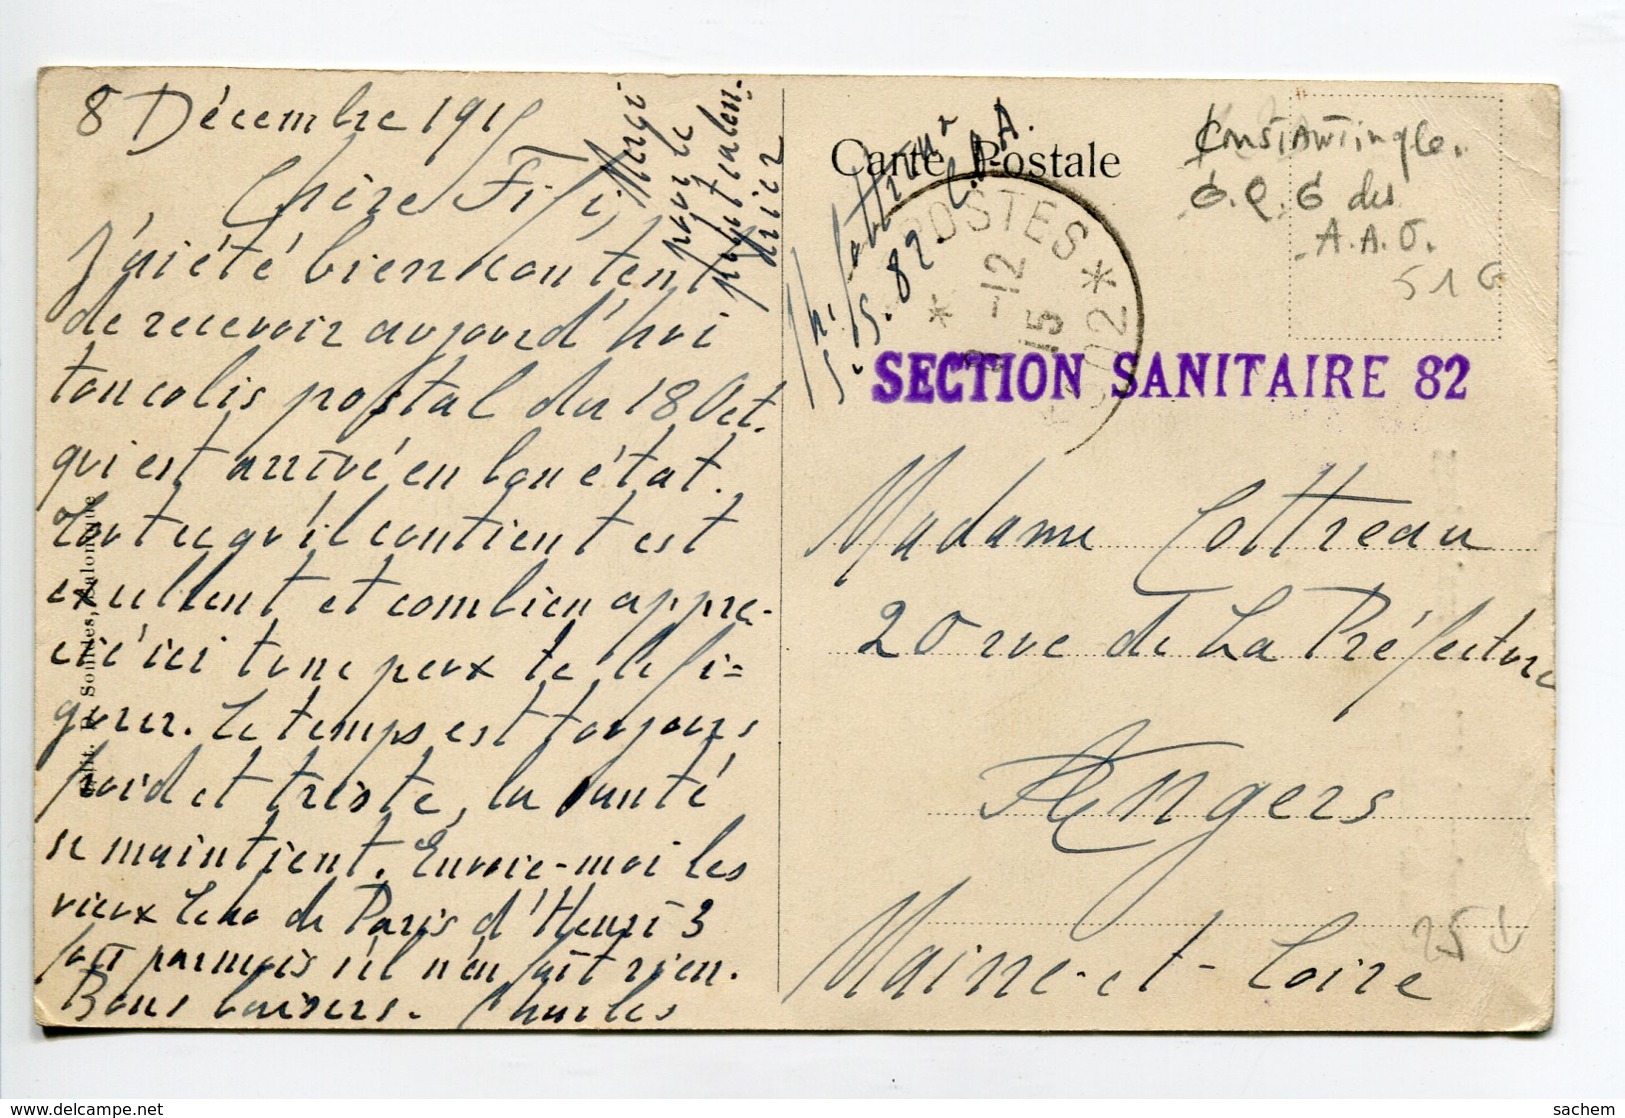 8 Décembre 1915
Chère Fifi,
Merci
pour le
petit calen
drier
J'ai été bien content
de recevoir aujourd'hui
ton colis postal du 18 Oct.
qui est arrivé en bon état.
Tout ce qu'il contient est
excellent et combien appré-
cié ici tu ne peux te le fi=
gurer. Le temps est toujours
froid et triste, la santé
se maintient. Envoie-moi les
vieux Echo de Paris d'Henri 3
fois par mois s'il n'en fait rien.
Bons baisers. Charles
Edit. P. Sondes, Salonique
Carte Postale
S.S. 82
A.A.
POSTES
-12
15
SECTION SANITAIRE 82
Constantinople.
G.Q.G des
A.A.O.
51 G
Madame Cottreau
20 rue de La Préfecture
Angers
Maine-et-Loire
25
www.delcampe.net
sachem